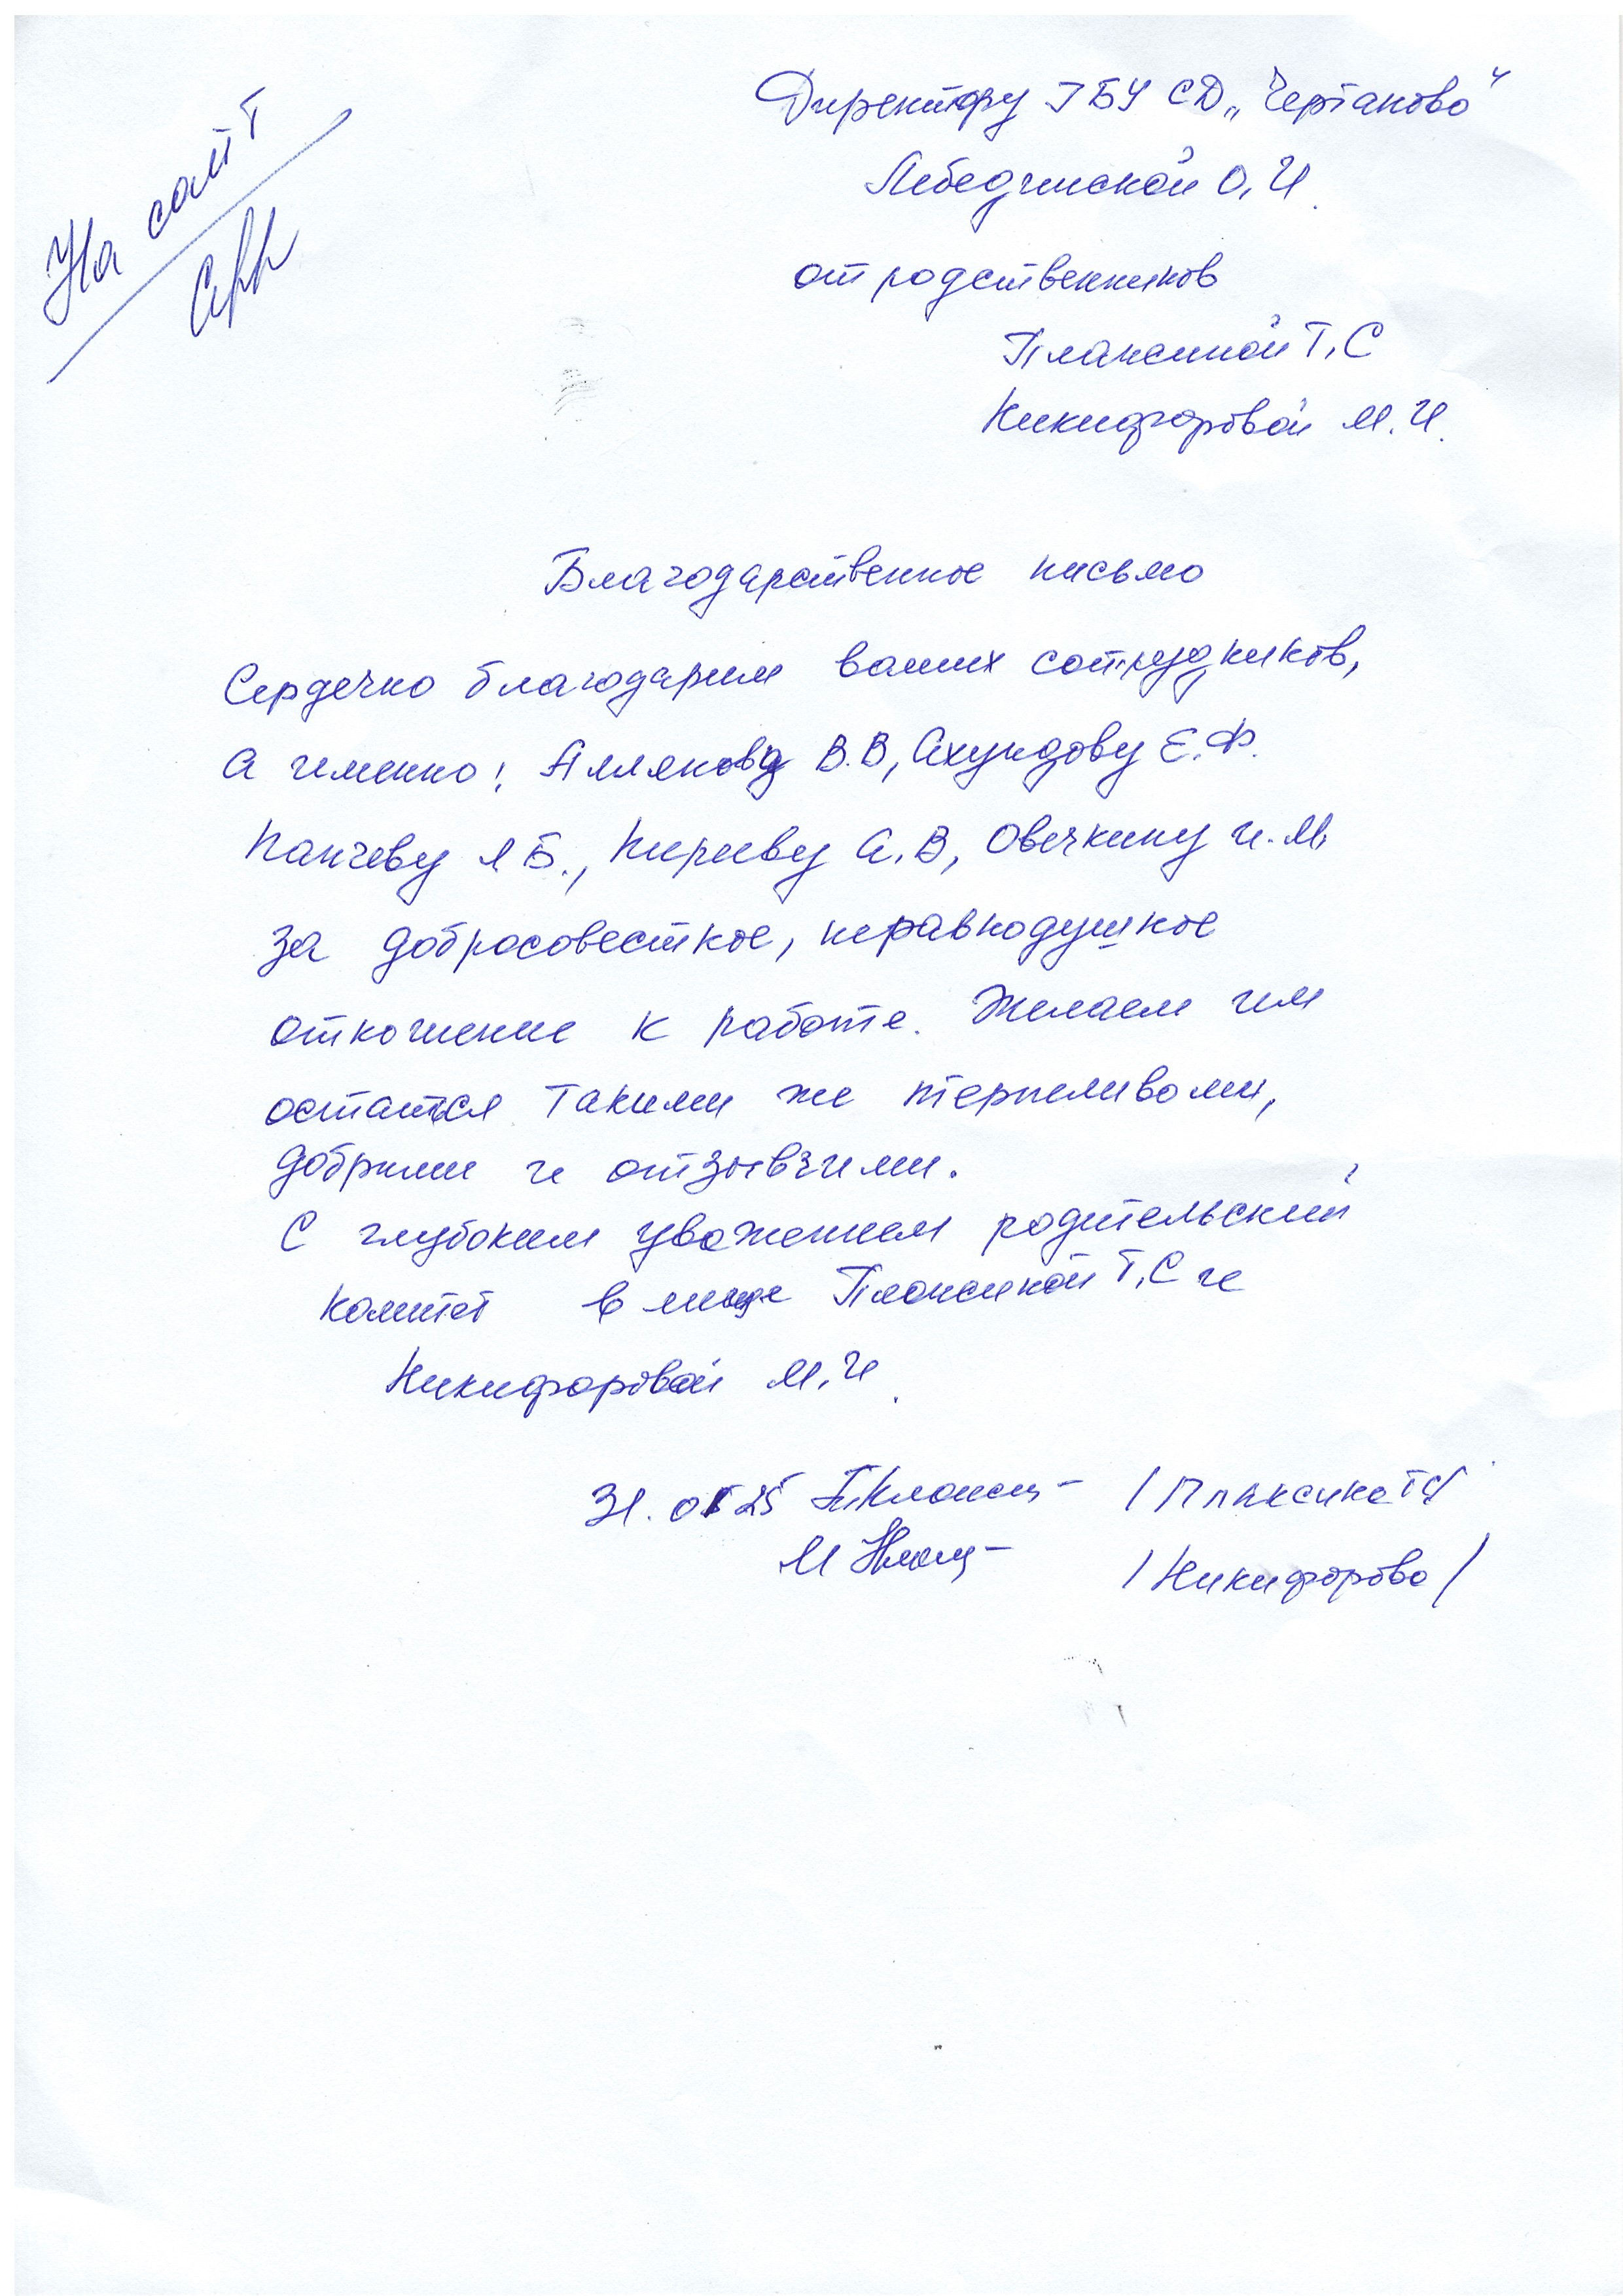 На сайт
Директору ГБУ СД „Чертаново"
Лебединской О,И.
от родственников
Плаксиной Т,С
Никифоровой М.И.
Благодарственное письмо
Сердечно благодарим ваших сотрудников,
а именно: Аллякову В.В, Ахундову Е.Ф.
Панчеву Л Б., Кирееву А.В, Овечкину И.М.
за добросовестное, неравнодушное
отношение к работе. Желаем им
остаться такими же терпеливами,
добрыми и отзывчими.
С глубоким уважением родительский
комитет в лице Плаксиной Т,С и
Никифоровой М,И.
31. 25 /Плаксина ТС/
/Никифорова/